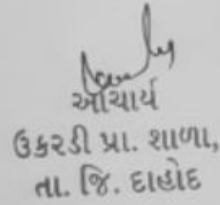 આચાર્ય
ઉકરડી પ્રા. શાળા,
તા. જિ. દાહોદ